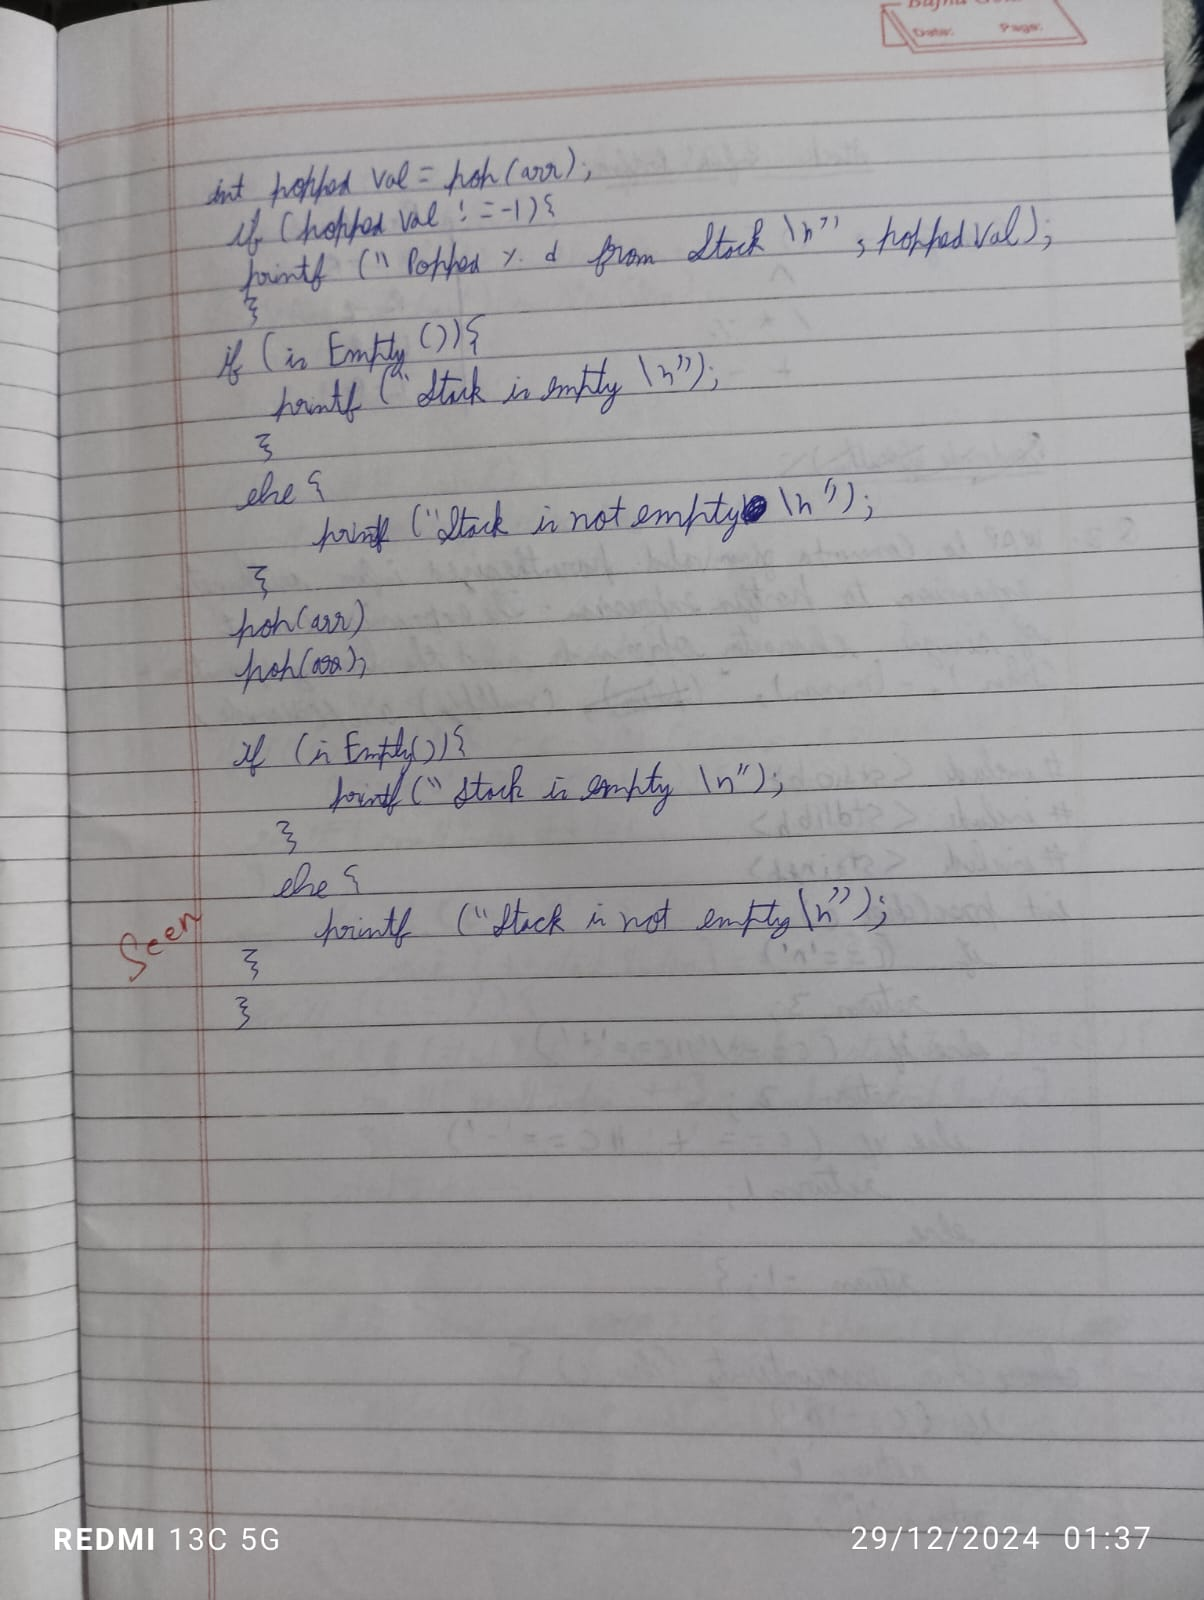 Date: Page:
int popped val = pop(arr);
if (popped val != -1){
printf (" Popped %. d from Stack \n" , popped val);
}
if (is Empty ()){
printf (" Stack is empty \n");
}
else {
printf ("Stack is not empty \n");
}
pop(arr)
pop(arr);
if (is Empty()){
printf (" Stack is empty \n");
}
else {
Seen printf ("Stack is not empty \n");
}
}
REDMI 13C 5G 29/12/2024 01:37